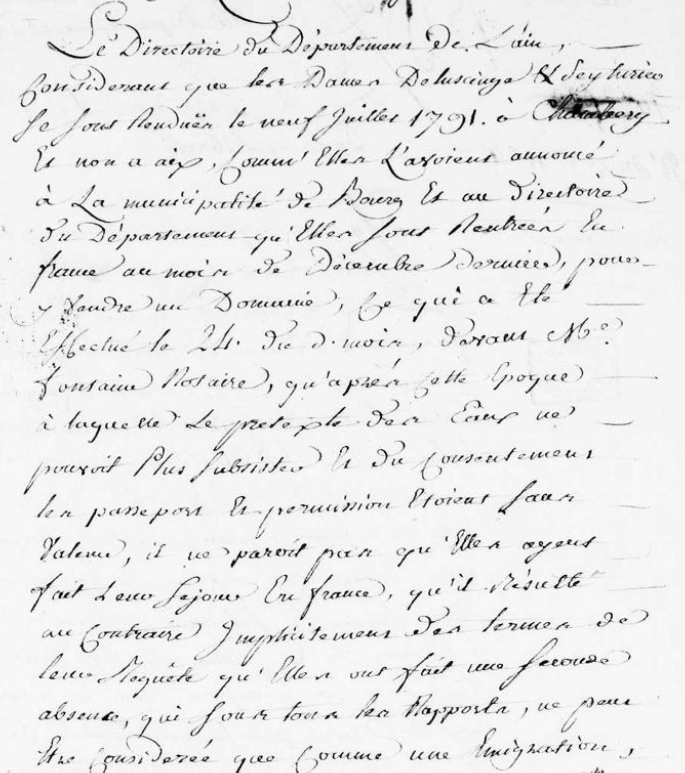 Le Directoire du Département de L'ain,
Considerant que les Dames Deluscinge & Seyturier
Se sont Renduës le neuf Juillet 1791. à Chambery
Et non a aix, Comm' Elles L'avoient annoncé
à La municipalité de Bourg Et au Directoire
du Département qu'Elles sont Rentrées En
france au mois de Décembre dernier, pour
y vendre un Domaine, Ce qui a Eté
Effectué le 24. du d. mois, devant Me.
fontaine Notaire, qu'après Cette Epoque
à laquelle Le pretexte des Eaux ne
pouvoit Plus subsister Et du Consentement
les passeport Et permission Etoient sans
Valeur, il ne paroit pas qu'Elles ayent
fait Leur Sejour En france, qu'il Résulte
au Contraire Implicitement des termes de
leur Requête qu'Elles ont fait une Seconde
absence, qui sous tous les Rapports, ne peut
Etre Considerée que Comme une Emigration,